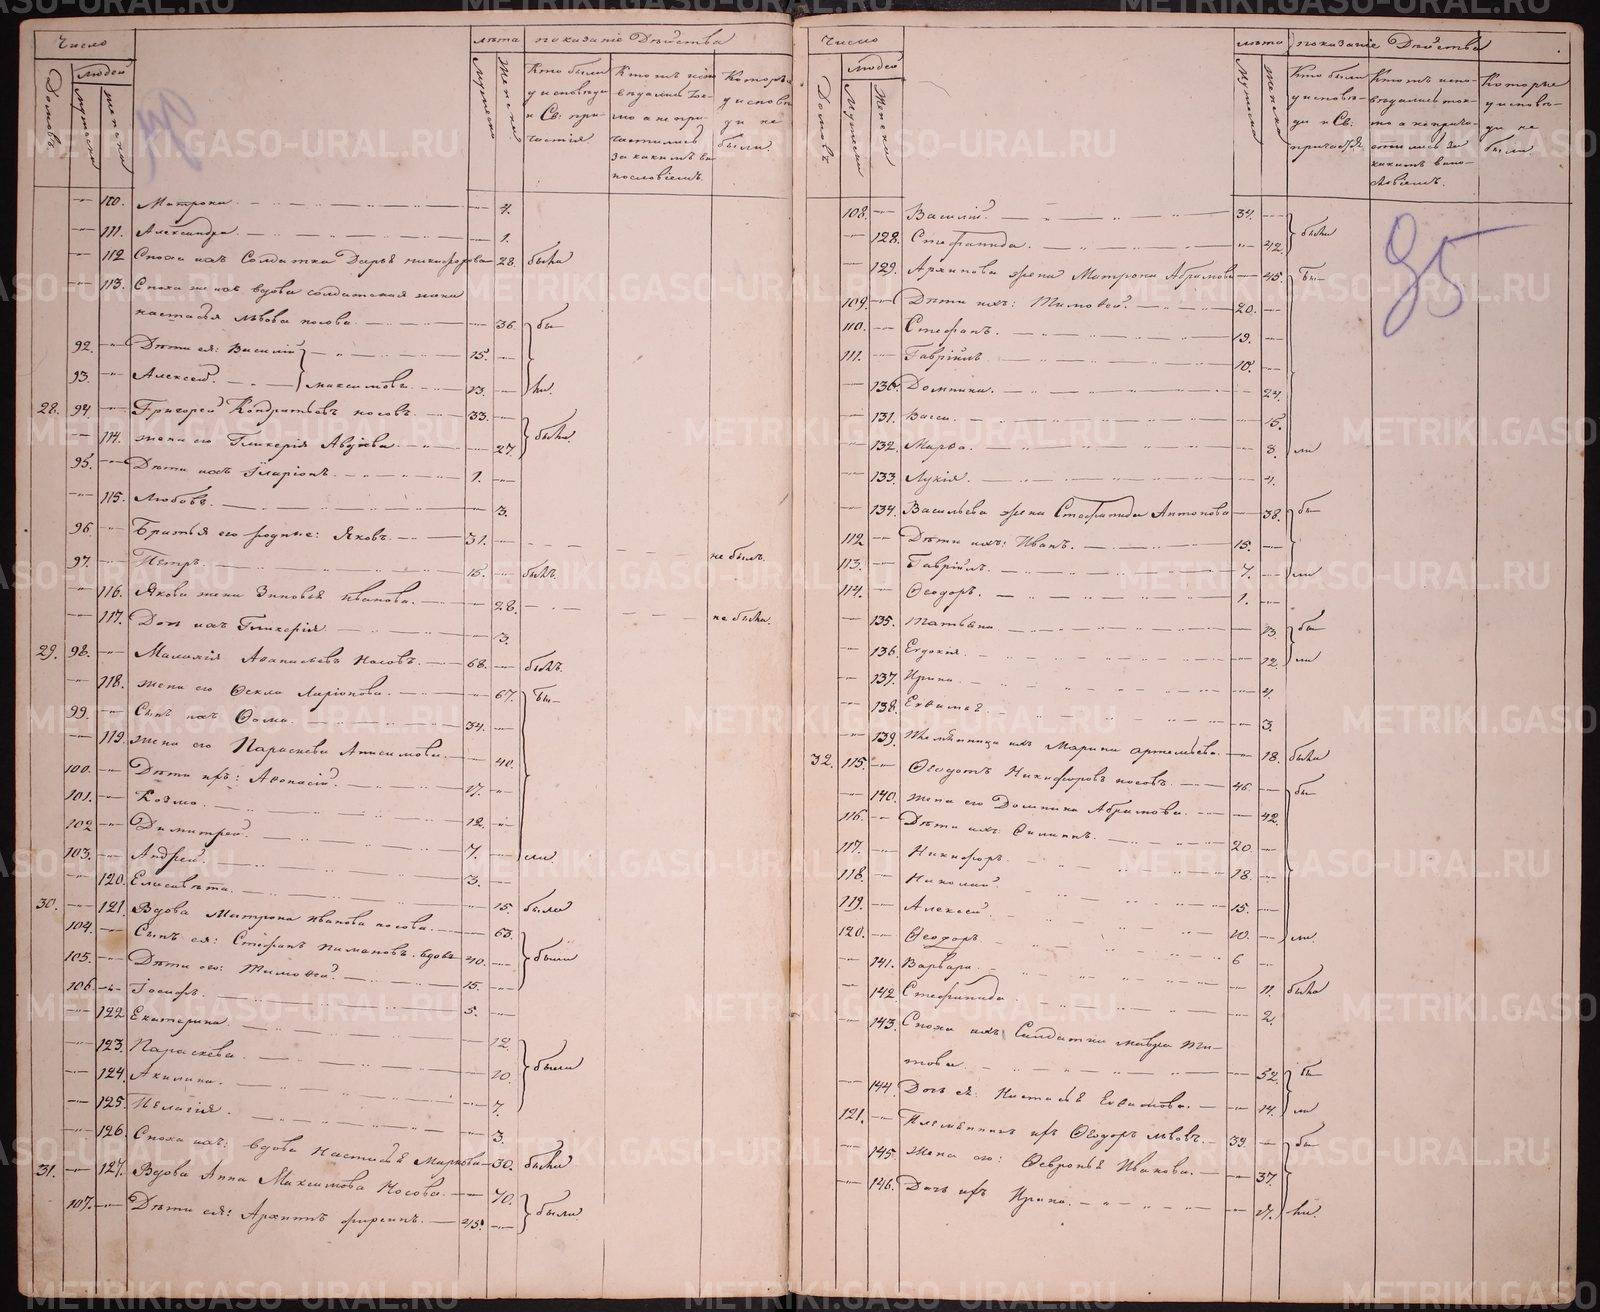 Число
Домовъ.
людей
мужеска
женска
лѣта
Мужеска
Женска
показаніе Дѣйства
Кто были
у исповѣди
и Св: при-
частія
Кто испо-
вѣдались то-
мо а не при-
частились
за какимъ ви-
нословіемъ.
Которые
у исповѣ-
ди не
были.
110. Матрона. 4.
111. Александра. 1.
112 Сноха ихъ Солдатка Дарья никифорова 28. была
113. Сноха же ихъ вдова солдатская жена
настасья львова носова. 36. бы-
92. Дѣти ея: Василій 15.
93. Алексей. максимовъ. 13. ли.
28. 94. Григорей Кондратьевъ носовъ. 33.
114. жена его Гликерія Авдѣева. 27. были.
95. Дѣти ихъ Иларіонъ. 1.
115. Любовь. 3.
96. Братья его родные: Яковъ. 31. не былъ.
97. Петръ. 15. былъ.
116. Якова жена Зиновья иванова. 28. не была.
117. Дочь ихъ Гликерія 3.
29. 98. Малахія Аѳанасьевъ Носовъ. 68. былъ.
118. жена его Ѳекла Ларіонова. 67. бы-
99. Сынъ ихъ Ѳома. 34.
119. жена его Параскева Анисимова. 40.
100. Дѣти ихъ: Аѳонасій. 17.
101. Козма. 12.
102. Димитрей. 7. ли.
103. Андрей. 3.
120. Елисавета. 15. были
30. 121. Вдова Матрона иванова носова. 63.
104. Сынъ ея: Стефанъ пимановъ. вдовъ 40. были
105. Дѣти его: Тимоѳей. 15.
106. Іосифъ. 5.
122. Екатерина. 12.
123. Параскева. 10. были
124. Акилина. 7.
125. Пелагія. 3.
126. Сноха ихъ: вдова Настасья Маркова 30. была
31. 127. Вдова Анна Максимова Носова. 70.
107. Дѣти ея: Архипъ фирсинъ. 45. были.
95
Число
Домовъ.
людей
Мужеска
Женска
лѣта
Мужеска
Женска
показаніе Дѣйства
Кто были
у исповѣ-
ди и Св:
причастія
Кто испо-
вѣдались ток-
мо а не прича-
стились за
какимъ вино-
словіемъ.
Которые
у исповѣ-
ди не
были.
108. Василій. 34.
128. Стефанида. 42. были
129. Архипова жена Матрона Абрамова 45. бы-
109. Дѣти ихъ: Тимоѳей. 20.
110. Стефанъ. 19.
111. Гаврійлъ 10.
130. Домника. 24.
131. Васса. 15.
132. Марѳа. 8. ли
133. Лукія. 4.
134. Васильева жена Стефанида Антонова 38. бы-
112. Дѣти ихъ: Иванъ. 15.
113. Гаврійлъ. 7. ли
114. Ѳеодоръ. 1.
135. Татьяна 13. бы-
136. Евдокія. 12. ли
137. Ирина. 4.
138. Евѳимья. 3.
139. Племянница ихъ Марина артемьева. 18. была
32. 115. Ѳеодотъ Никифоровъ носовъ. 46. бы
140. жена его Домника Абрамова. 42.
116. Дѣти ихъ: Филипъ. 20.
117. Никифоръ. 18.
118. Николай. 18.
119. Алексей. 15.
120. Ѳеодоръ 10. ли.
141. Варвара. 6
142. Стефанида. 11. была
2.
143. Сноха ихъ: Солдатка мавра Ти-
това 52. бы-
144. Дочь ея: Настасья Евѳимова. 14. ли
121. Племянникъ ихъ Ѳеодоръ львовъ. 39. бы-
145. Жена его: Ѳевронья Иванова. 37.
146. Дочь ихъ Ирина. ли.
METRIKI.GASO-URAL.RU